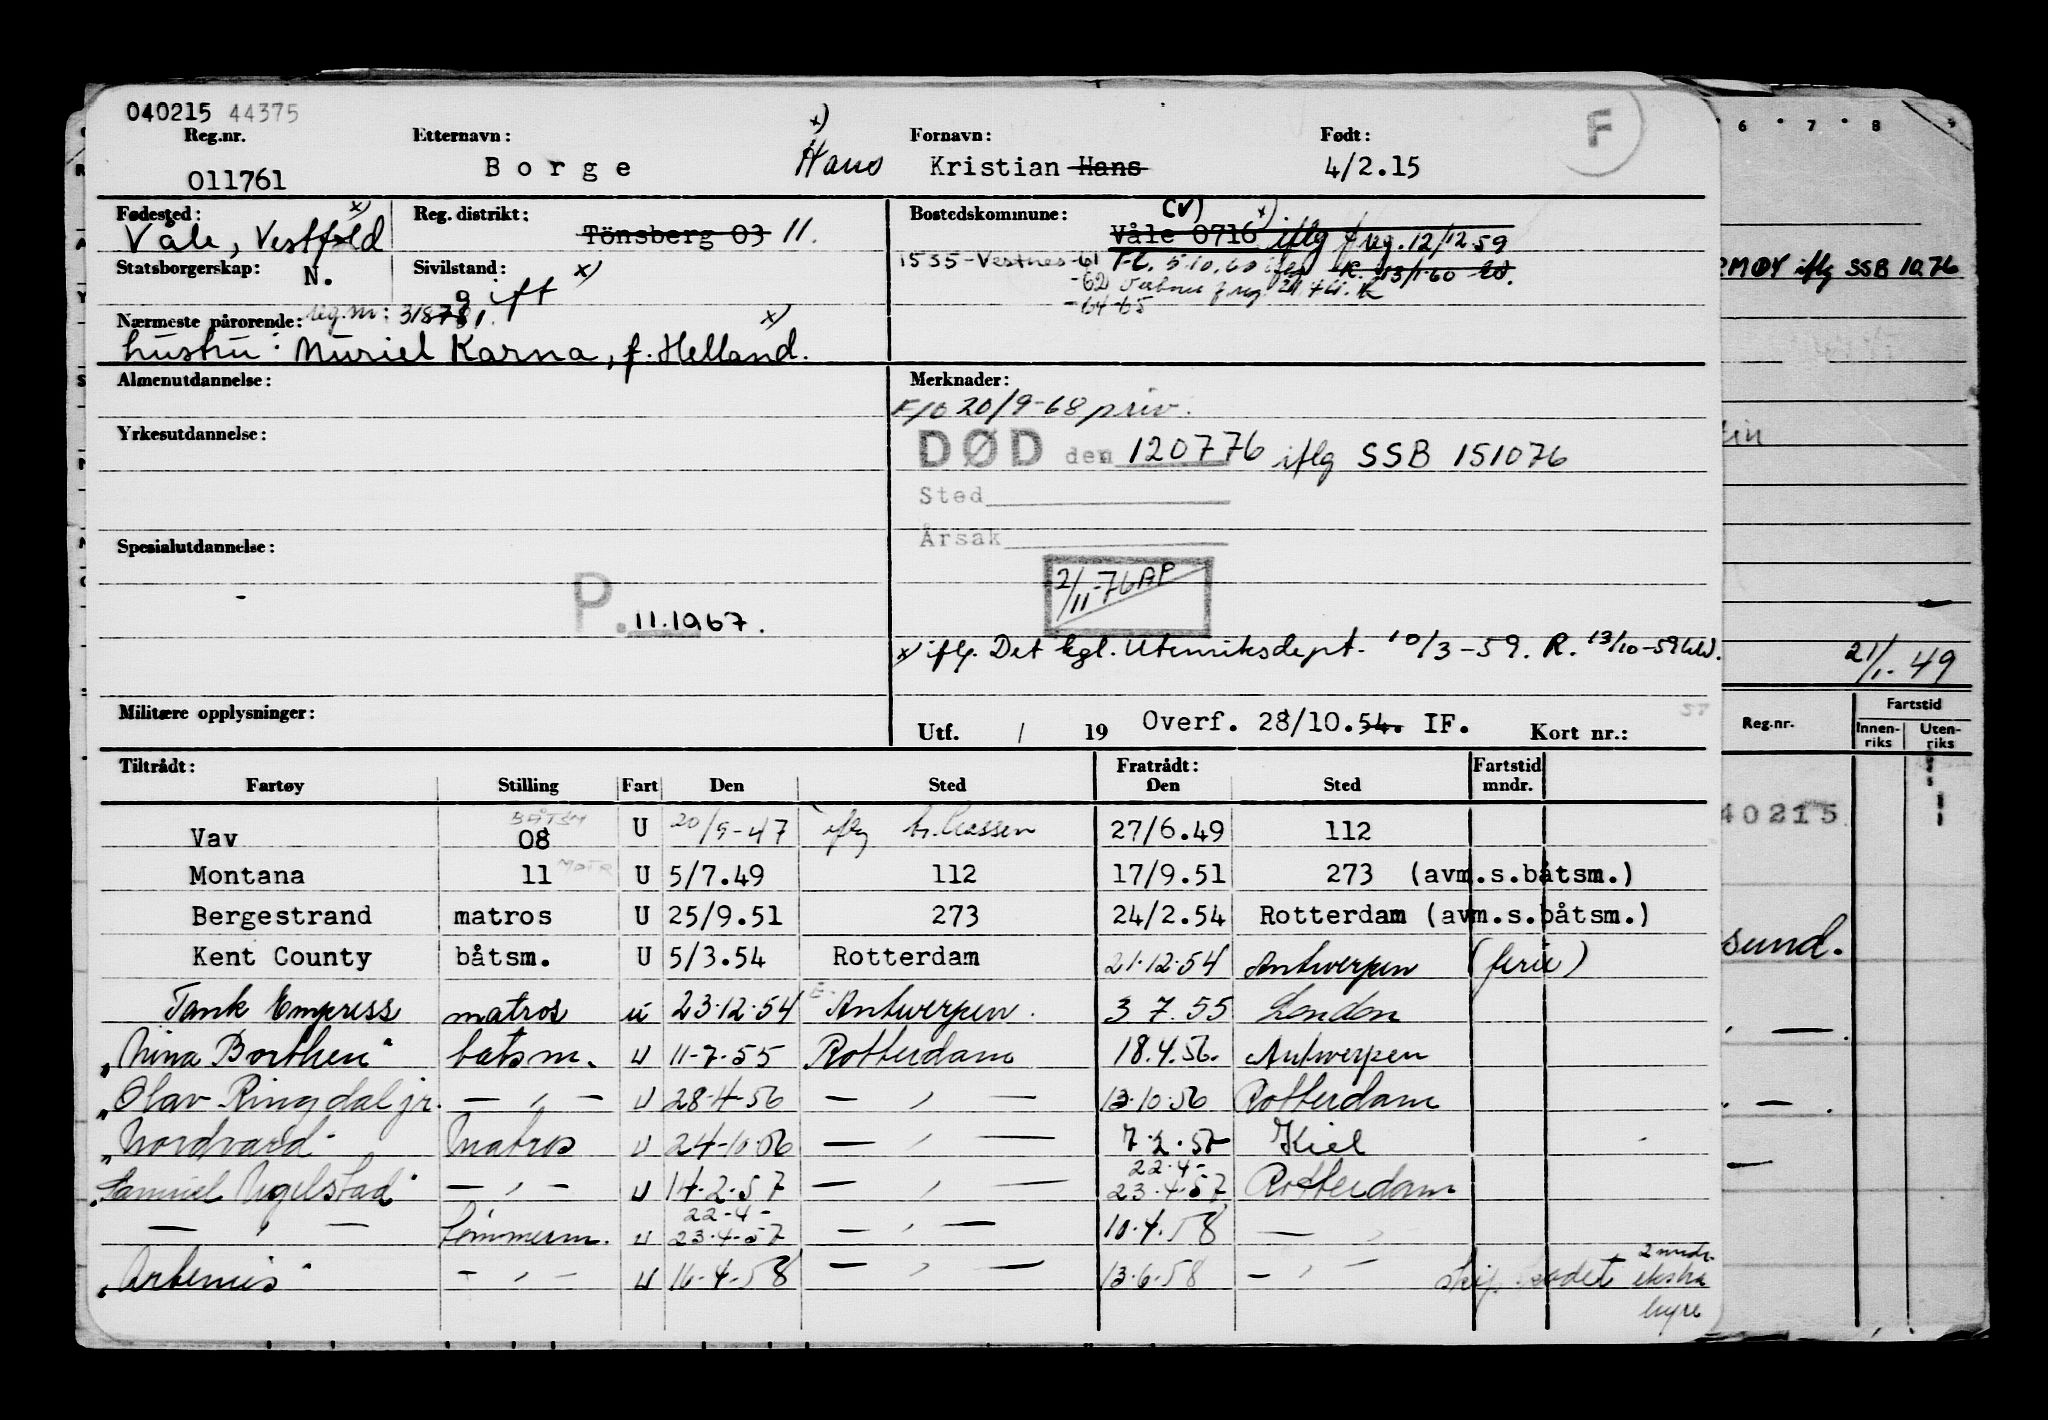 040215 44375
Reg.nr. Etternavn: x) Fornavn: Født: F
011761 Borge Hans Kristian Hans 4/2.15
Fødested: x) Reg. distrikt: Bostedskommune: (V) x)
Våle, Vestfold Tönsberg 03 11. Våle 0716 iflg freg. 12/12 59
1535-Vestnes-61 T-L. 5.10.60 R. 13/1-60
Statsborgerskap: N. Sivilstand: gift x) -62
-64-65
Nærmeste pårørende: reg.nr: 318781. x)
hustru: Muriel Karna, f. Helland.
Almenutdannelse: Merknader:
F/O 20/9-68 priv.
Yrkesutdannelse: DØD den 120776 iflg SSB 151076
Sted
Årsak
Spesialutdannelse:
2/11-76 AP
P. 11.1967.
x) iflg. Det kgl. Utenriksdept. 10/3-59. R. 13/10-59
Militære opplysninger: Utf. / 19 Overf. 28/10.54. IF. Kort nr.: 57
Tiltrådt: Fratrådt: Fartstid
Fartøy Stilling Fart Den Sted Den Sted mndr.
Vav 08 BÅTSM U 20/9-47 iflg 27/6.49 112
Montana 11 MOTR U 5/7.49 112 17/9.51 273 (avm.s.båtsm.)
Bergestrand matros U 25/9.51 273 24/2.54 Rotterdam (avm.s.båtsm.)
Kent County båtsm. U 5/3.54 Rotterdam 21.12.54 Antwerpen (ferie)
Tank Empress matros u 23.12.54 Antwerpen. 3 7.55 London
"Nina Borthen" båtsm. u 11-7-55 Rotterdam 18.4.56. Antwerpen
"Olav Ringdal jr. — " — u 28-4-56 — " — 13.10.56 Rotterdam
"Nordvard" Matros u 24-10-56 — " — 7.2.57 Kiel
"Samuel Ugelstad" — " — u 14-2-57 — " — 22.4- 23.4.57 Rotterdam
— " — tömmerm. u 22-4- 23.4-57 — " — 10.4.58 — "
"Artemis" — " — u 16-4-58 — " — 13.6.58 — " — 2 mndr. ekstra hyre
6 7 8 9
RMØY iflg SSB 1076
21/1-49
Reg.nr. Fartstid
Innenriks Utenriks
40215
sund.